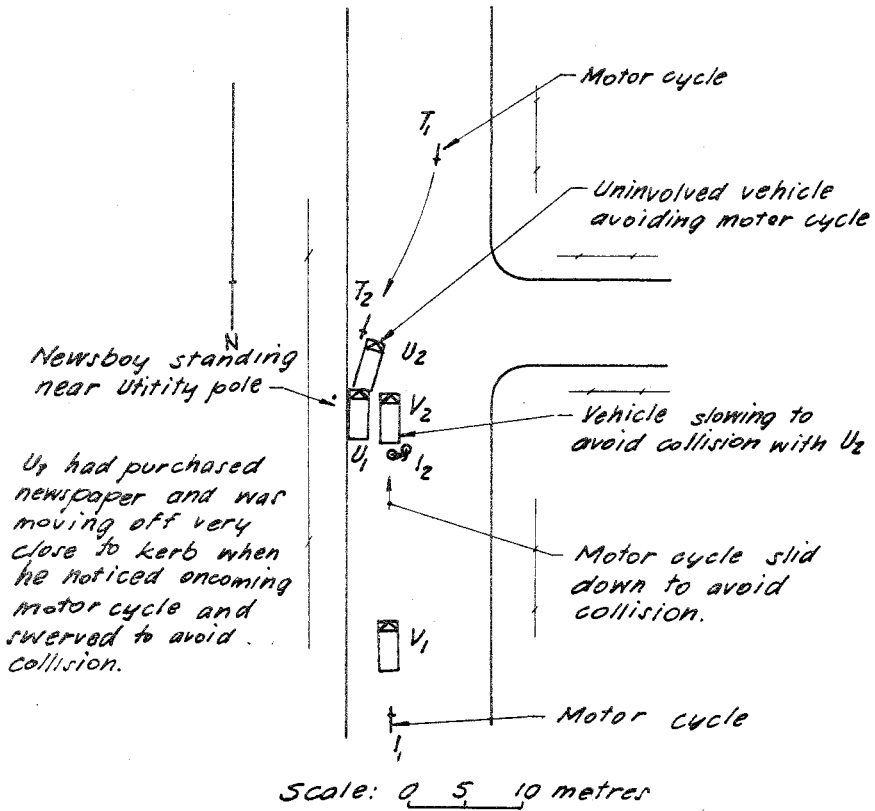 Motor cycle
T1
Uninvolved vehicle
avoiding motor cycle
T2
N
U2
Newsboy standing
near Utitity pole
V2
Vehicle slowing to
avoid collision with U2
U1
I2
U1 had purchased
newspaper and was
moving off very
close to kerb when
he noticed oncoming
motor cycle and
swerved to avoid
collision.
Motor cycle slid
down to avoid
collision.
V1
Motor cycle
I1
Scale: 0 5 10 metres